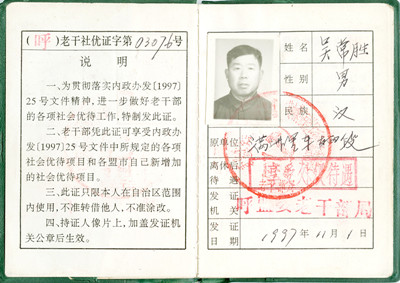 (呼)老干社优证字第03076号
说明
一、为贯彻落实内政办发[1997]
25号文件精神,进一步做好老干部
的各项社会优待工作,特制发此证。
二、老干部凭此证可享受内政办
发[1997]25号文件中所规定的各项
社会优待项目和各盟市自己新增加
的社会优待项目。
三、此证只限本人在自治区范围
内使用,不准转借他人,不准涂改。
四、持证人像片上,加盖发证机
关公章后生效。
姓名 吴常胜
性别 男
民族 汉
原单位
离休后
待遇 享受 待遇
发证
机关 呼盟 老干部局
发证
日期 1997年11月1日